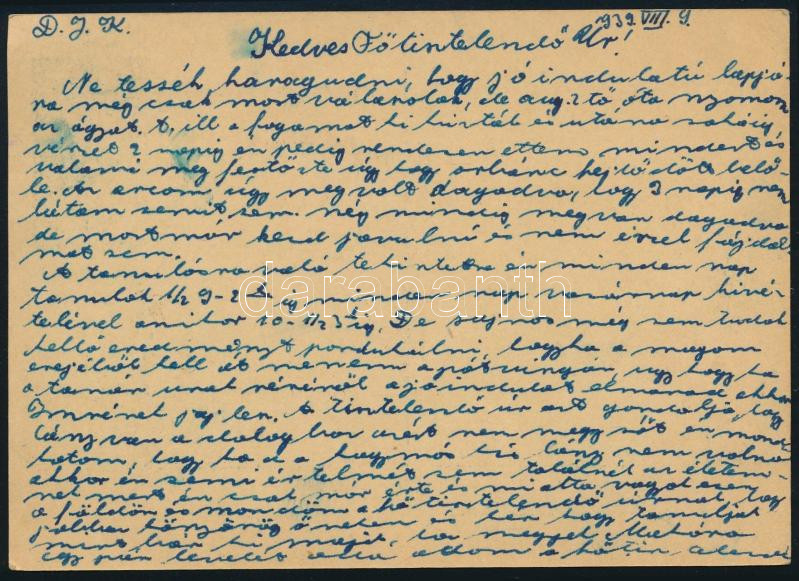 D. J. K. 939. VIII. 9.
Kedves Főtintelendő Úr!
Ne tessék haragudni, hogy jó indulatú lapjá-
ra még csak most válaszolok, de aug. 2 től óta nyomom
az ágyat, t. ill. a fogamat ki húzták és utána sokáig
vérzet 2 napig én pedig rendesen ettem mindent és
valami meg fertőzte úgy hogy orbánc fejlődött belő-
le. Az arcom úgy meg volt dagadva, hogy 3 napig nem
láttam semmit sem. még mindig meg van dagadva
de most már kezd javulni és nem érzek fájdal-
mat sem.
A tanulásra való tekintetbe én minden nap
tanulok 1/2 9-2 ig minden nap vasárnap kivé-
telével amikor 10-1/2 3 ig. De sajnos még sem tudok
kellő eredményt fordulni, hogyha a magam
erejéből kell át mennem a pótvizsgán, úgy hogy ha
a tanár urak részéről a jóindulat elmarad akkor
Imrének jaj lesz. A tintelendő úr azt gondolja, hogy
lány van a dologban azért nem megy sőt én mond-
hatom, hogy ha az a hagymás kis lány nem volna
akkor én semmi értelmét sem találnék az életem-
nek mert én csak már érte és miatta vagyok ezen
a földön és mondom a főtintelendő úrnak, hogy
jobban
mint bár ki majd, ha megyek Makóra
egy pár levelet
darabanth